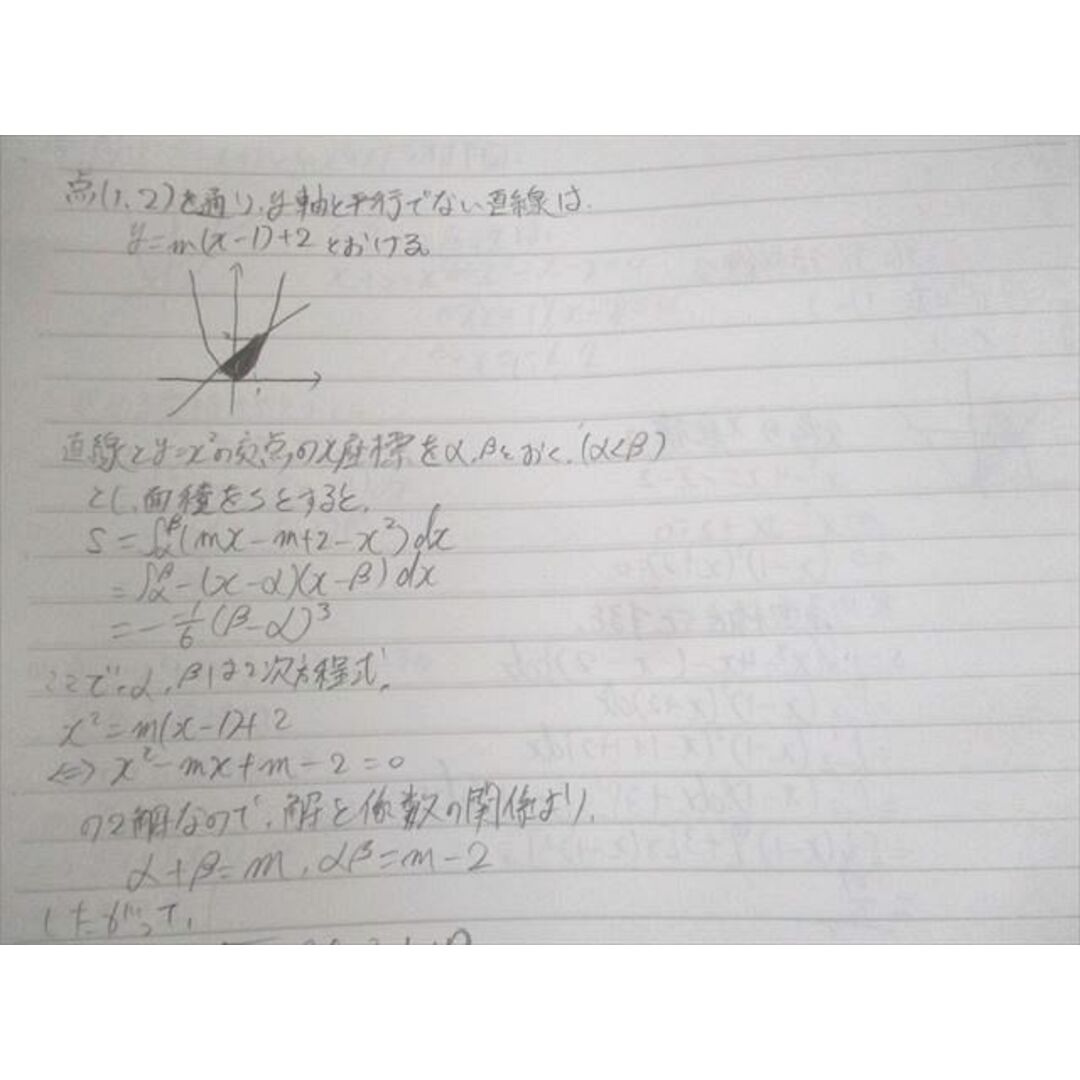 点(1,2)を通り,y軸と平行でない直線は.
y=m(x-1)+2とおける。
直線とy=x²の交点のx座標をα,βとおく.(α<β)
とし,面積をSとすると,
S=∫αβ(mx-m+2-x²)dx
=∫αβ-(x-α)(x-β)dx
=-1/6(β-α)³
ここで,α,βは2次方程式,
x²=m(x-1)+2
⇔x²-mx+m-2=0
の2解なので,解と係数の関係より,
α+β=m,αβ=m-2
したがって,